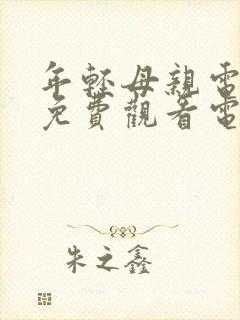 年輕母親電
免費觀看電
朱之鑫